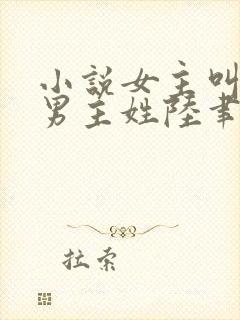 小說女主叫
男主姓陸
拉索